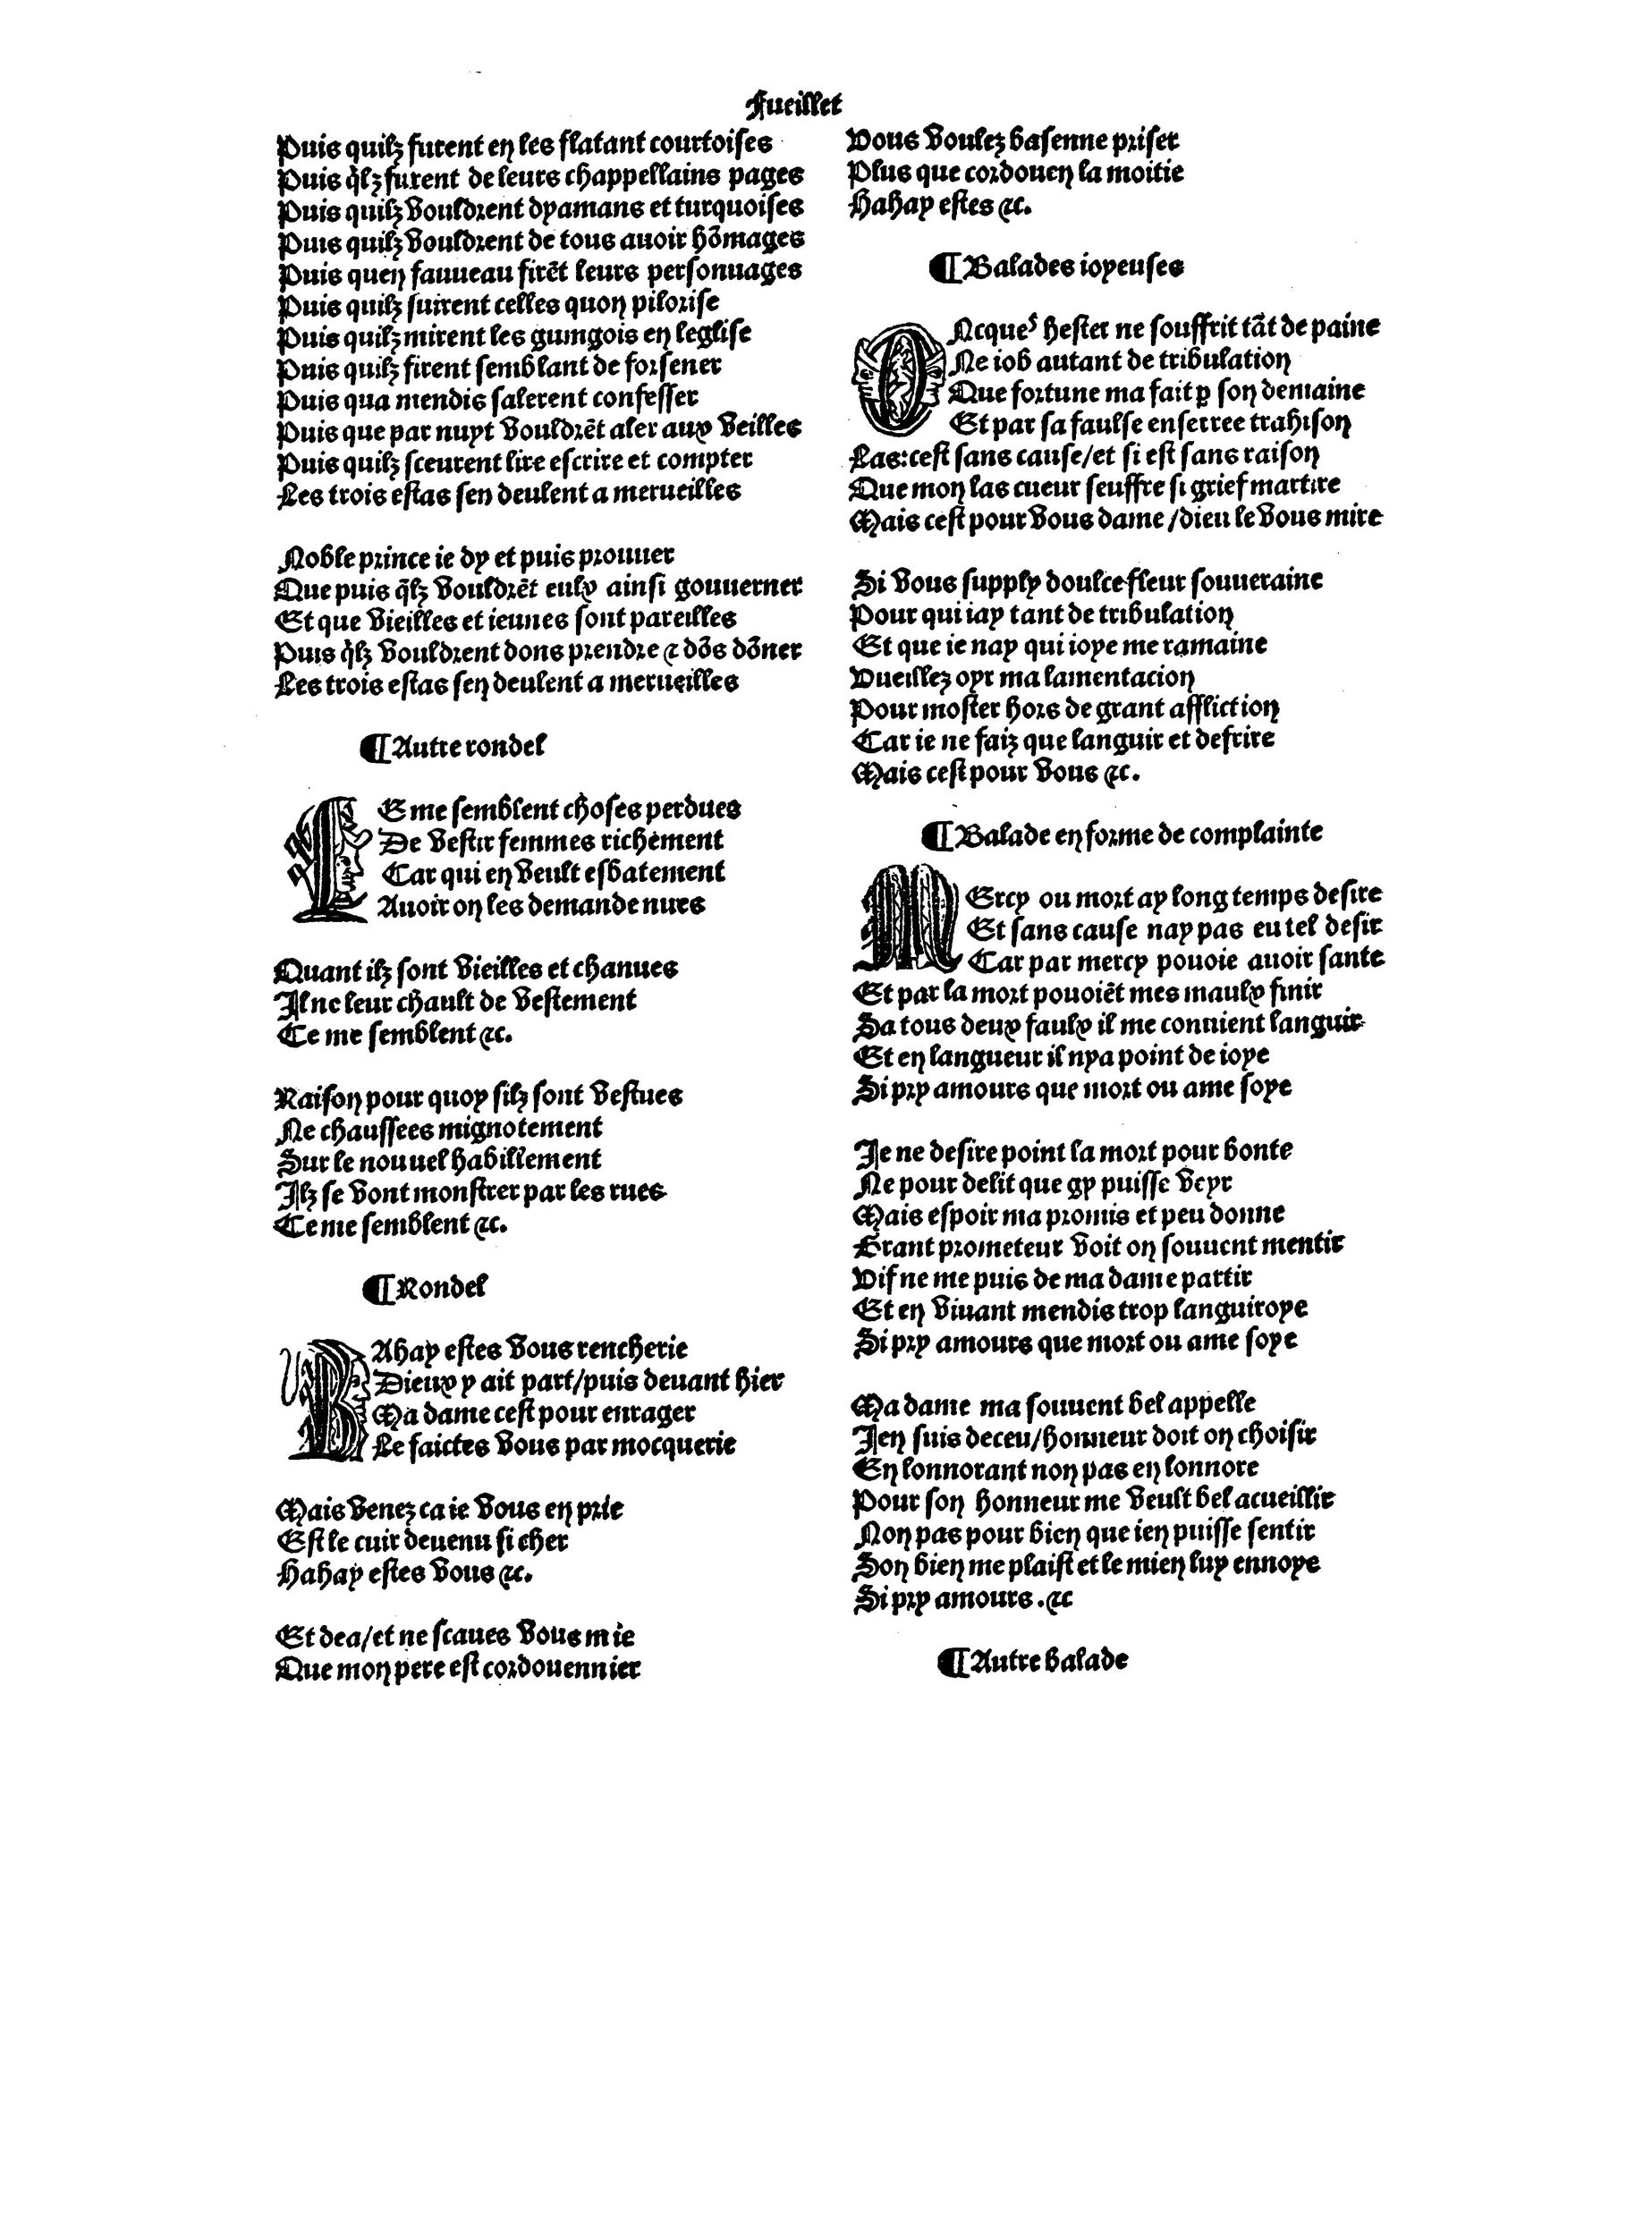 Fueillet
Puis quilz furent en les flatant courtoises
Puis q̃lz furent de leurs chappellains pages
Puis quilz vouldrent dyamans et turquoises
Puis quilz vouldrent de tous auoir hõmages
Puis quen fauueau firẽt leurs personnages
Puis quilz suirent celles quon pilorise
Puis quilz mirent les gumgois en leglise
Puis quilz firent semblant de forsener
Puis qua mendis salerent confesser
Puis que par nuyt vouldrẽt aler aux veilles
Puis quilz sceurent lire escrire et compter
Les trois estas sen deulent a merueilles
Noble prince ie dy et puis prouuer
Que puis q̃lz vouldrẽt eulx ainsi gouuerner
Et que vieilles et ieunes sont pareilles
Puis q̃lz vouldrent dons prendre & dõs dõner
Les trois estas sen deulent a merueilles
¶ Autre rondel
CE me semblent choses perdues
De vestir femmes richement
Car qui en veult esbatement
Auoir on les demande nues
Quant ilz sont vieilles et chanues
Il ne leur chault de vestement
Ce me semblent &c.
Raison pour quoy silz sont vestues
Ne chaussees mignotement
Sur le nouuel habillement
Ilz se vont monstrer par les rues
Ce me semblent &c.
¶ Rondel
BAhay estes vous rencherie
Dieux y ait part/puis deuant hier
Ma dame cest pour enrager
Le faictes vous par mocquerie
Mais venez ca ie vous en prie
Est le cuir deuenu si cher
Hahay estes vous &c.
Et dea/et ne scaues vous mie
Que mon pere est cordouennier
Vous voulez basenne priser
Plus que cordouen la moitie
Hahay estes &c.
¶ Balades ioyeuses
ONcques hester ne souffrit tãt de paine
Ne iob autant de tribulation
Que fortune ma fait ꝑ son demaine
Et par sa faulse enserree trahison
Las:cest sans cause/et si est sans raison
Que mon las cueur seuffre si grief martire
Mais cest pour vous dame/dieu le vous mire
Si vous supply doulce fleur souueraine
Pour qui iay tant de tribulation
Et que ie nay qui ioye me ramaine
Vueillez oyr ma lamentacion
Pour moster hors de grant affliction
Car ie ne faiz que languir et defrire
Mais cest pour vous &c.
¶ Balade en forme de complainte
MErcy ou mort ay long temps desire
Et sans cause nay pas eu tel desir
Car par mercy pouoie auoir sante
Et par la mort pouoiẽt mes maulx finir
Sa tous deux faulx il me conuient languir
Et en langueur il nya point de ioye
Si pry amours que mort ou ame soye
Je ne desire point la mort pour bonte
Ne pour delit que gy puisse veyr
Mais espoir ma promis et peu donne
Grant prometeur voit on souuent mentir
Vif ne me puis de ma dame partir
Et en viuant mendis trop languiroye
Si pry amours que mort ou ame soye
Ma dame ma souuent bel appelle
Jen suis deceu/honneur doit on choisir
En lonnorant non pas en lonnore
Pour son honneur me veult bel acueillir
Non pas pour bien que ien puisse sentir
Son bien me plaist et le mien luy ennoye
Si pry amours.&c
¶ Autre balade